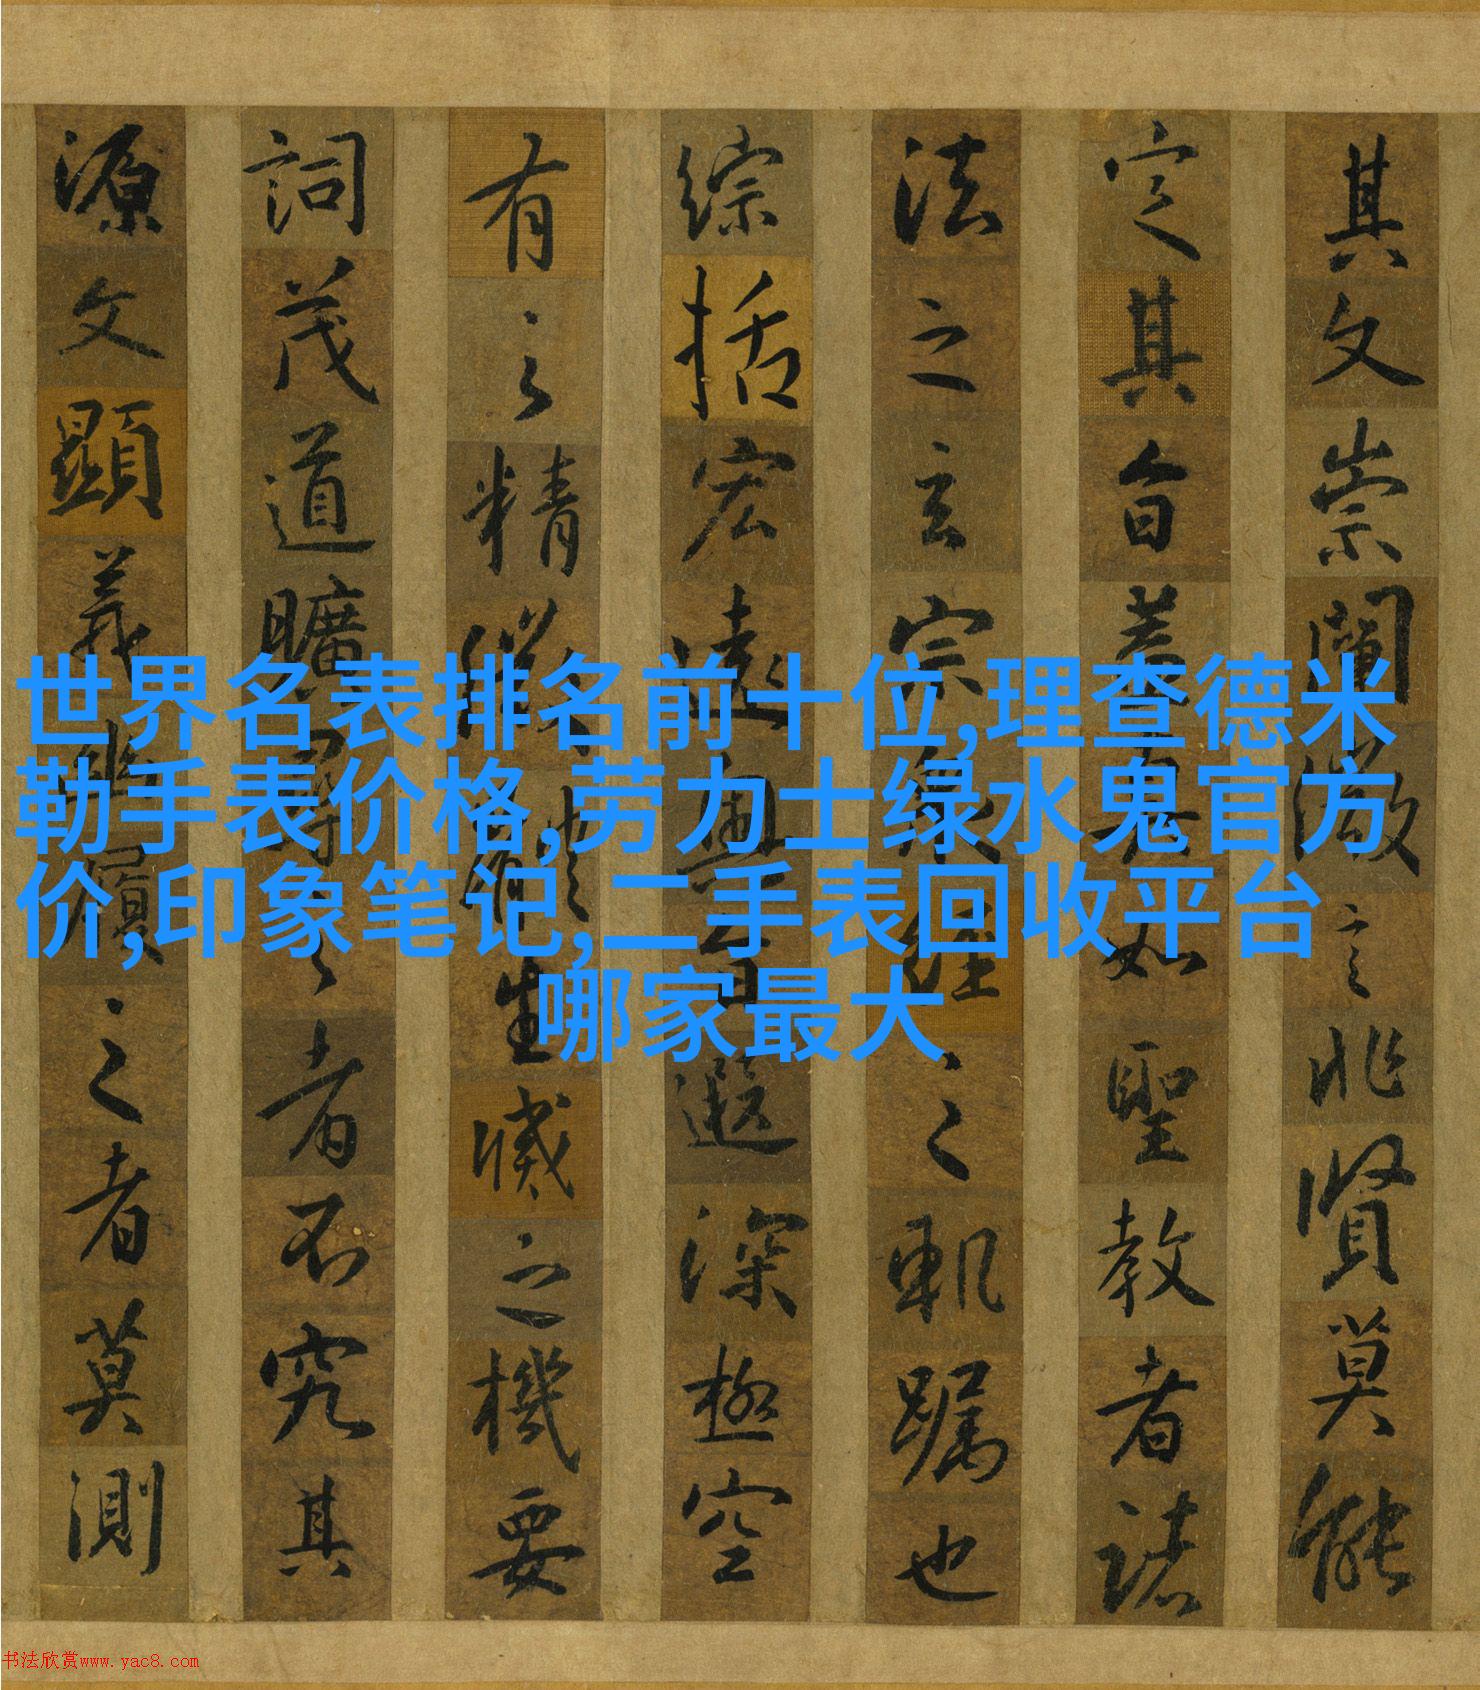 其文崇闡微言非賢莫能
定其旨蓋真如聖教者諸
法之玄宗眾經之軌躅也
綜括宏遠奧旨遐深極空
有之精微體生滅之機要
詞茂道曠尋之者不究其
源文顯義幽履之者莫測
世界名表排名前十位,理查德米
勒手表价格,劳力士绿水鬼官方
价,印象笔记,二手表回收平台
哪家最大
书法欣赏www.yac8.com